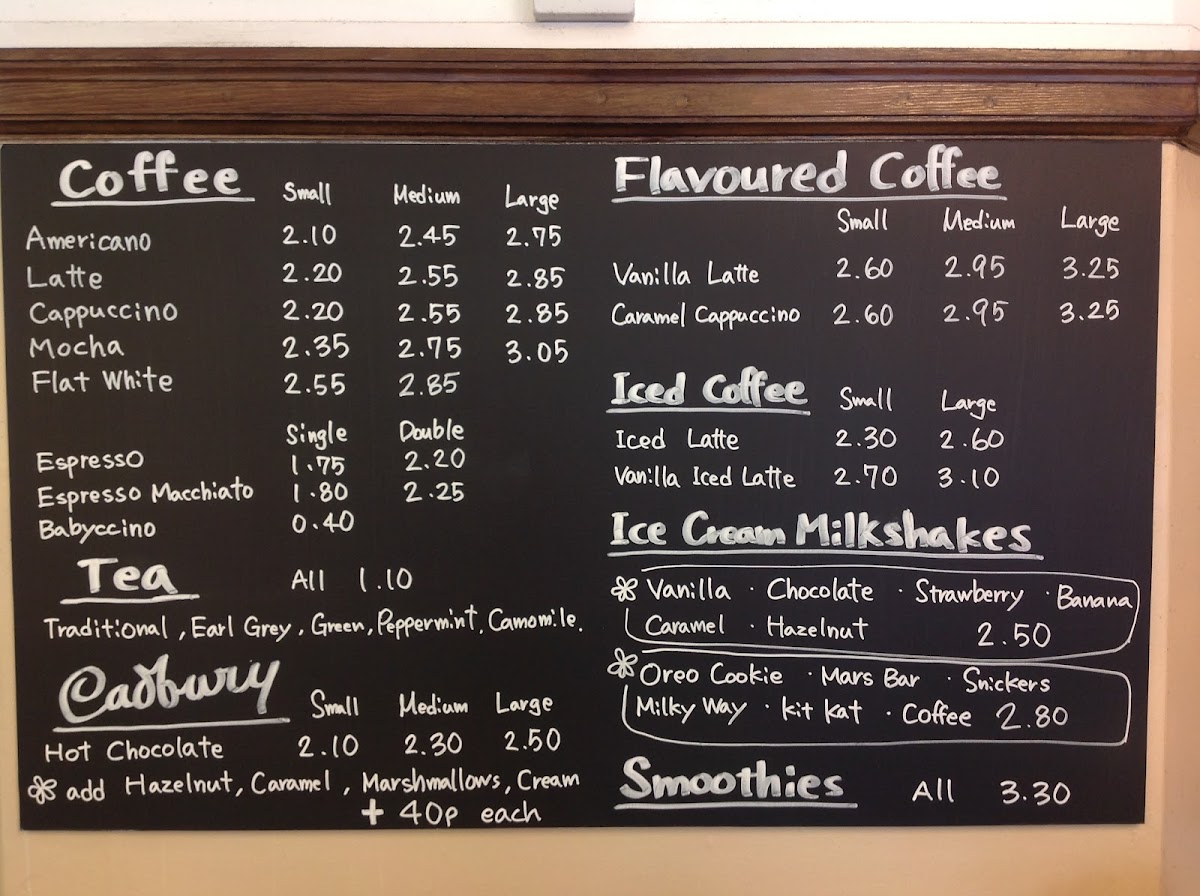 Coffee Small Medium Large
Americano 2.10 2.45 2.75
Latte 2.20 2.55 2.85
Cappuccino 2.20 2.55 2.85
Mocha 2.35 2.75 3.05
Flat White 2.55 2.85
Single Double
Espresso 1.75 2.20
Espresso Macchiato 1.80 2.25
Babyccino 0.40
Tea All 1.10
Traditional, Earl Grey, Green, Peppermint, Camomile.
Cadbury Small Medium Large
Hot Chocolate 2.10 2.30 2.50
add Hazelnut, Caramel, Marshmallows, Cream
+ 40p each
Flavoured Coffee
Small Medium Large
Vanilla Latte 2.60 2.95 3.25
Caramel Cappuccino 2.60 2.95 3.25
Iced Coffee Small Large
Iced Latte 2.30 2.60
Vanilla Iced Latte 2.70 3.10
Ice Cream Milkshakes
Vanilla · Chocolate · Strawberry · Banana
Caramel · Hazelnut 2.50
Oreo Cookie · Mars Bar · Snickers
Milky Way · Kit Kat · Coffee 2.80
Smoothies All 3.30